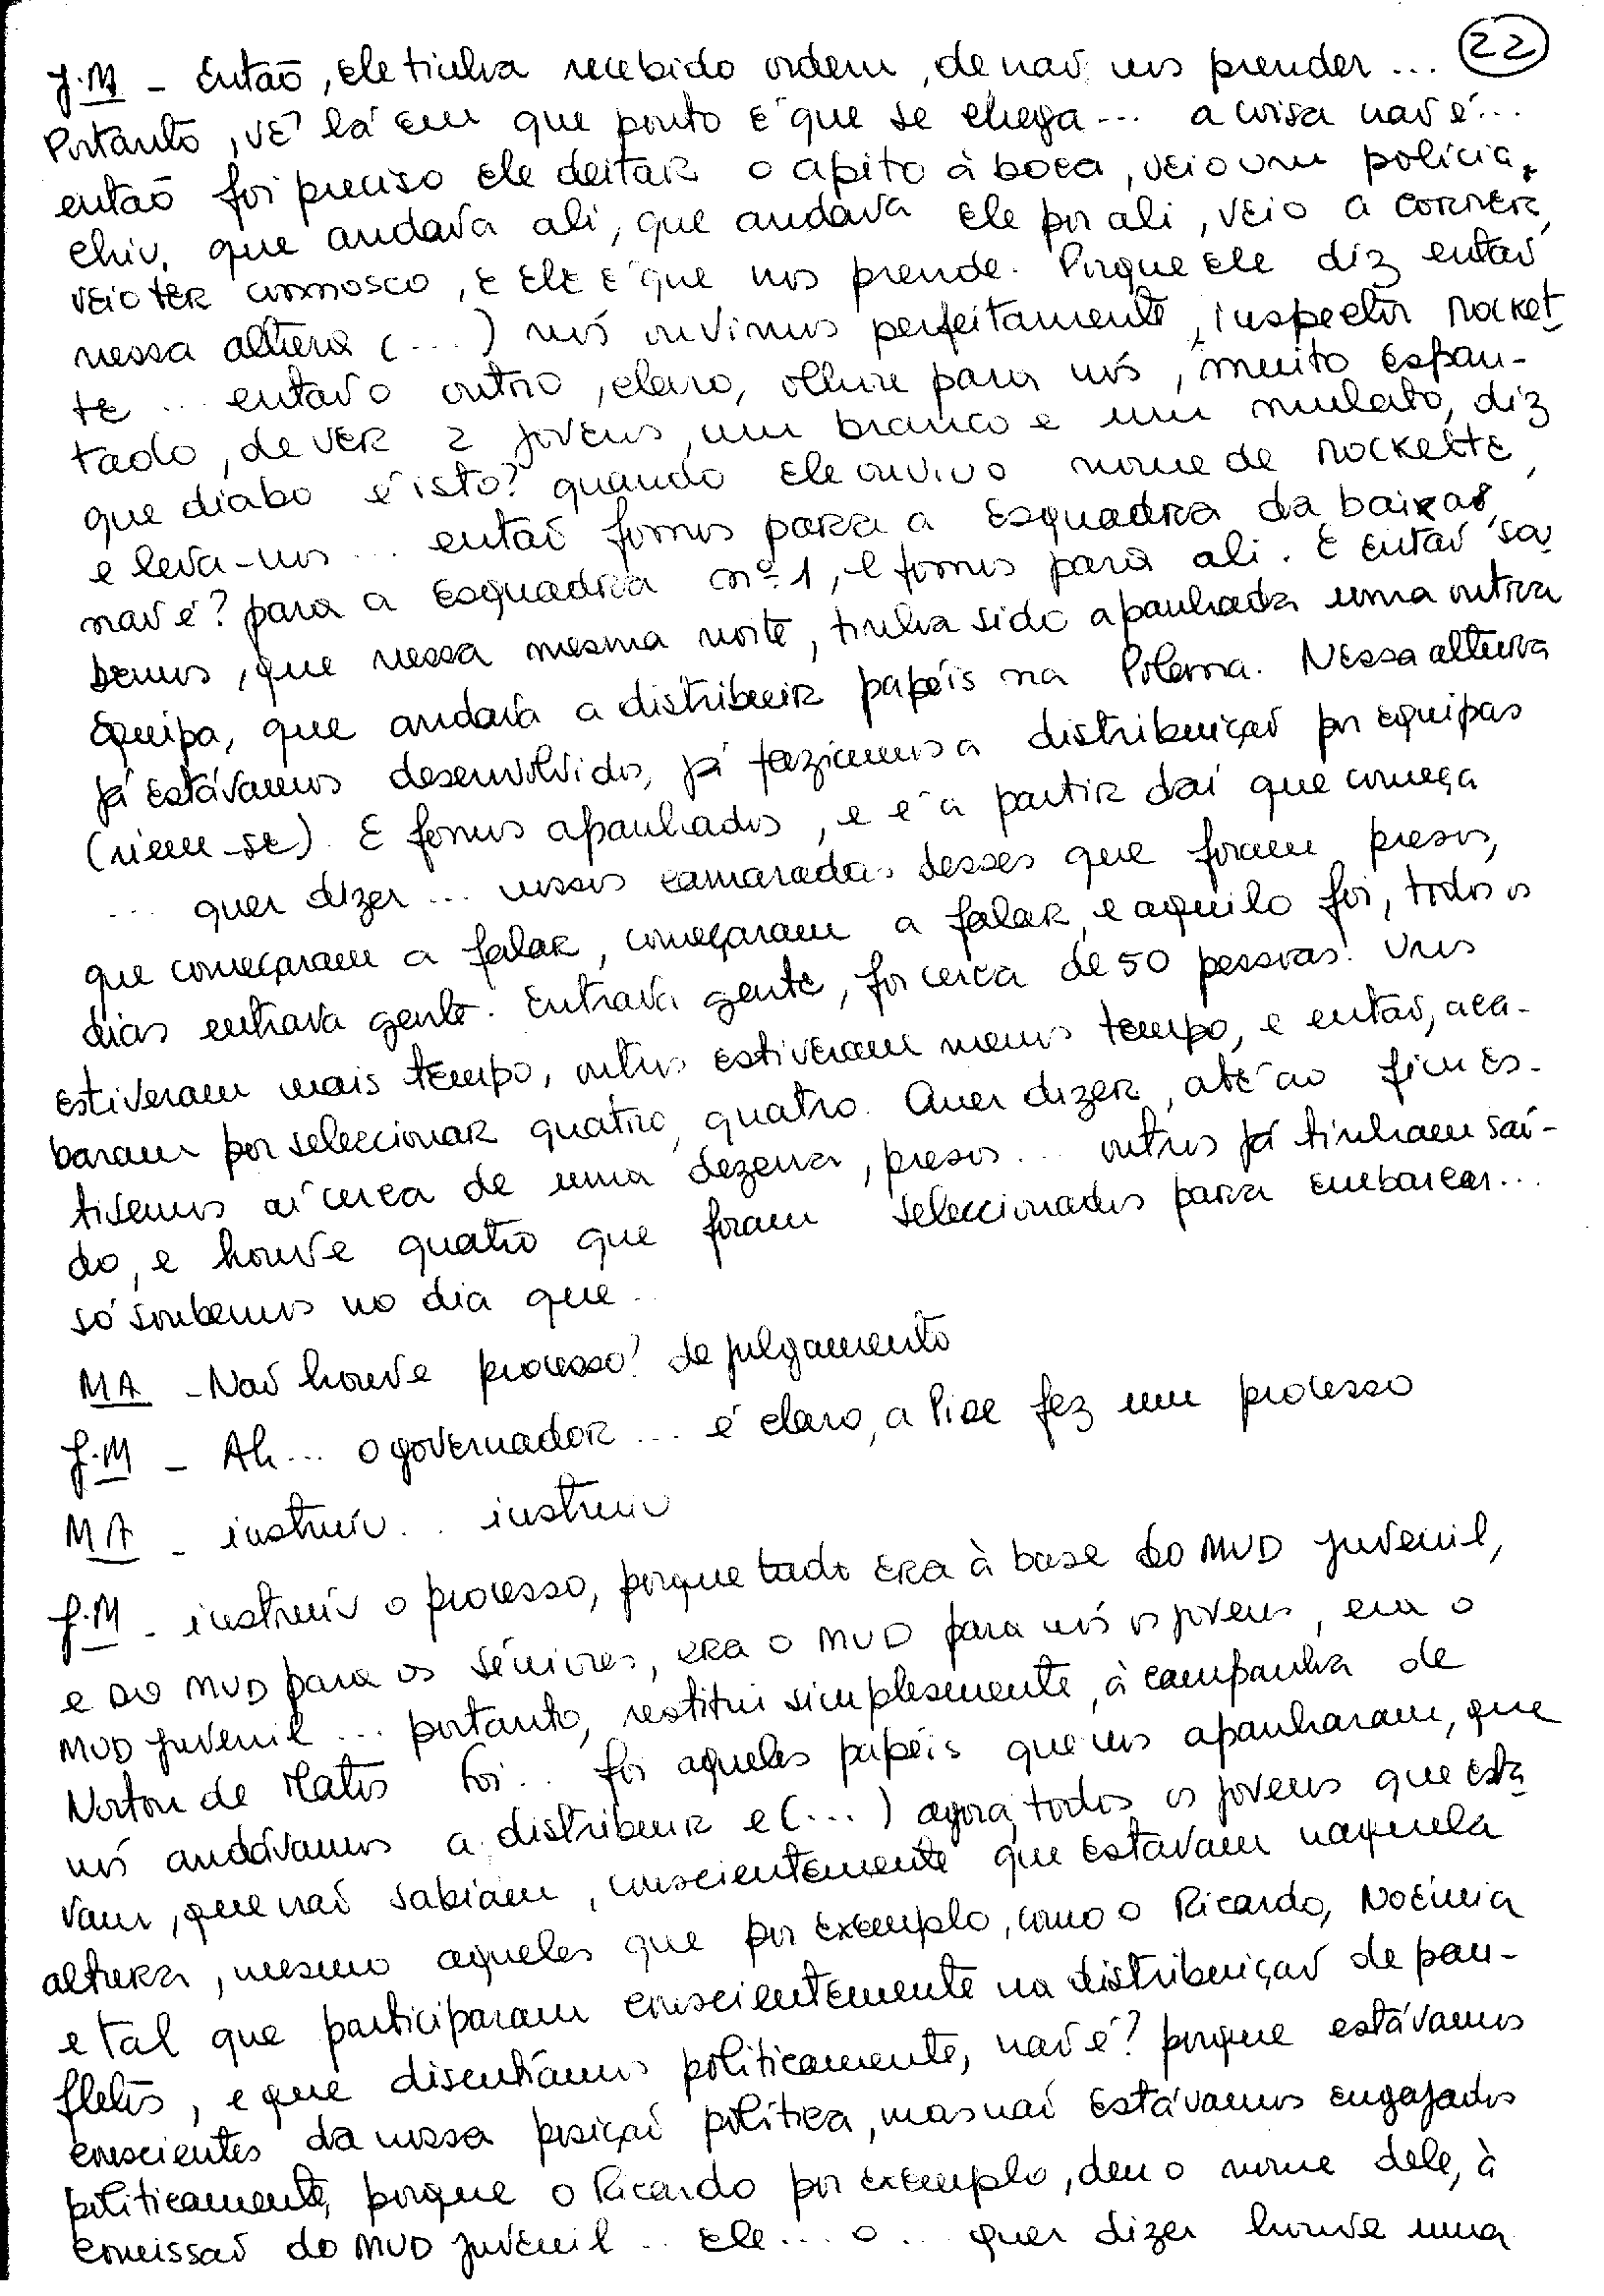 22
J.M - Então, ele tinha recebido ordem, de não nos prender...
Portanto, vê lá em que ponto é que se chega... a coisa não é...
então foi preciso ele deitar o apito à boca, veio um polícia,
chiu, que andava ali, que andava ele por ali, veio a correr,
veio ter connosco, e ele é que nos prende. Porque ele diz então
nessa altura (...) nós ouvimos perfeitamente, inspector Rocket
te... então o outro, claro, olhou para nós, muito espan-
tado, de ver 2 jovens, um branco e um mulato, diz
que diabo é isto? quando ele ouviu o nome de Rockette,
e leva-nos... então fomos para a Esquadra da baixa,
não é? para a Esquadra nº 1, e fomos para ali. E então sou
bemos, que nessa mesma noite, tinha sido apanhada uma outra
equipa, que andava a distribuir papéis na Polana. Nessa altura
já estávamos desenvolvidos, já fazíamos a distribuição por equipas
(riem-se). E fomos apanhados, e é a partir daí que começa
... quer dizer... nossos camaradas desses que foram presos,
que começaram a falar, começaram a falar, e aquilo foi, todos os
dias entrava gente. Entrava gente, foi cerca de 50 pessoas. Uns
estiveram mais tempo, outros estiveram menos tempo, e então, aca-
baram por seleccionar quatro, quatro. Quer dizer, até ao fim es-
tivemos aí cerca de uma dezena, presos... outros já tinham saí-
do, e houve quatro que foram seleccionados para embarcar...
só soubemos no dia que..
MA - Não houve processo? de julgamento
J.M - Ah... o governador... é claro, a Pide fez um processo
MA - instruiu... instruiu
J.M - instruiu o processo, porque tudo era à base do MUD juvenil,
e do MUD para os séniores, era o MUD para nós os jovens, era o
MUD juvenil... portanto, restitui simplesmente, à campanha de
Norton de Matos foi.. foi aqueles papéis que nos apanharam, que
nós andávamos a distribuir e (...) agora, todos os jovens que esta
vam, que não sabiam, conscientemente que estavam naquela
altura, mesmo aqueles que por exemplo, como o Ricardo, Noémia
e tal que participaram conscientemente na distribuição de pan-
fletos, e que discutíamos politicamente, não é? porque estávamos
conscientes da nossa posição política, mas não estávamos engajados
politicamente, porque o Ricardo por exemplo, deu o nome dele, à
comissão do MUD juvenil.. ele... o.. quer dizer houve uma